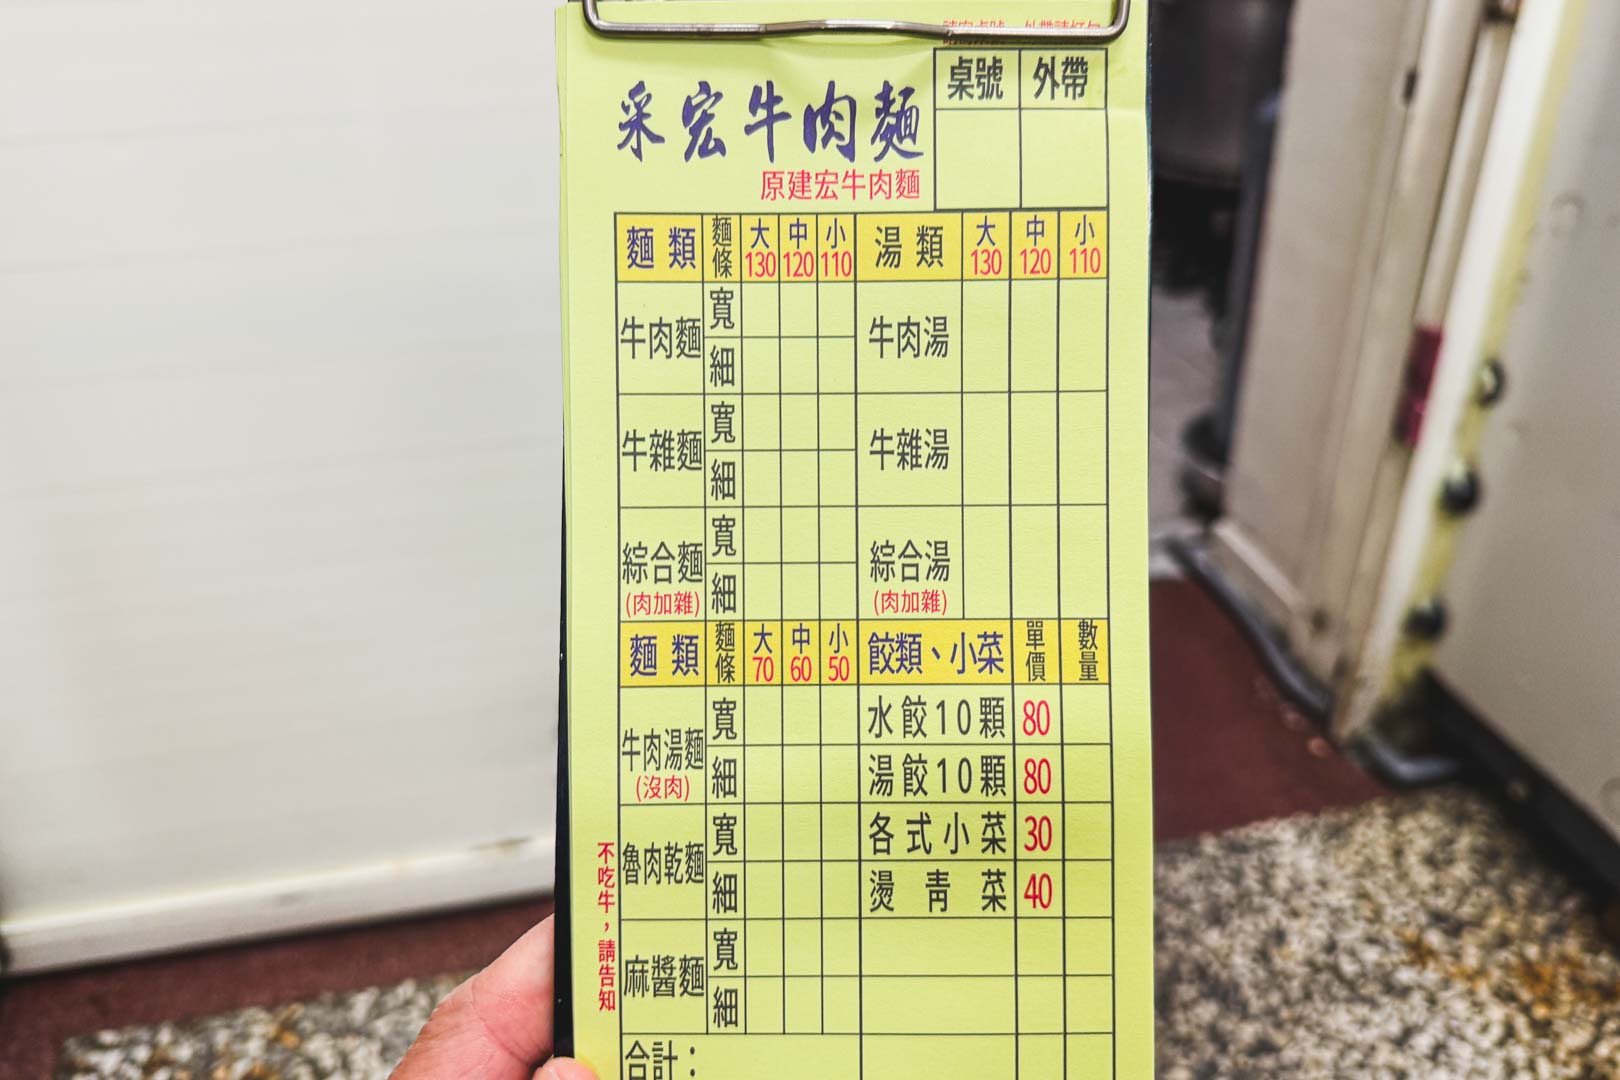 桌號 外帶
采宏牛肉麵
原建宏牛肉麵
麵類 麵條 大130 中120 小110 湯類 大130 中120 小110
牛肉麵 寬 細 牛肉湯
牛雜麵 寬 細 牛雜湯
綜合麵 (肉加雜) 寬 細 綜合湯 (肉加雜)
麵類 麵條 大70 中60 小50 餃類、小菜 單價 數量
牛肉湯麵 (沒肉) 寬 細
水餃10顆 80
湯餃10顆 80
魯肉乾麵 寬 細
各式小菜 30
燙青菜 40
麻醬麵 寬 細
不吃牛，請告知
合計：